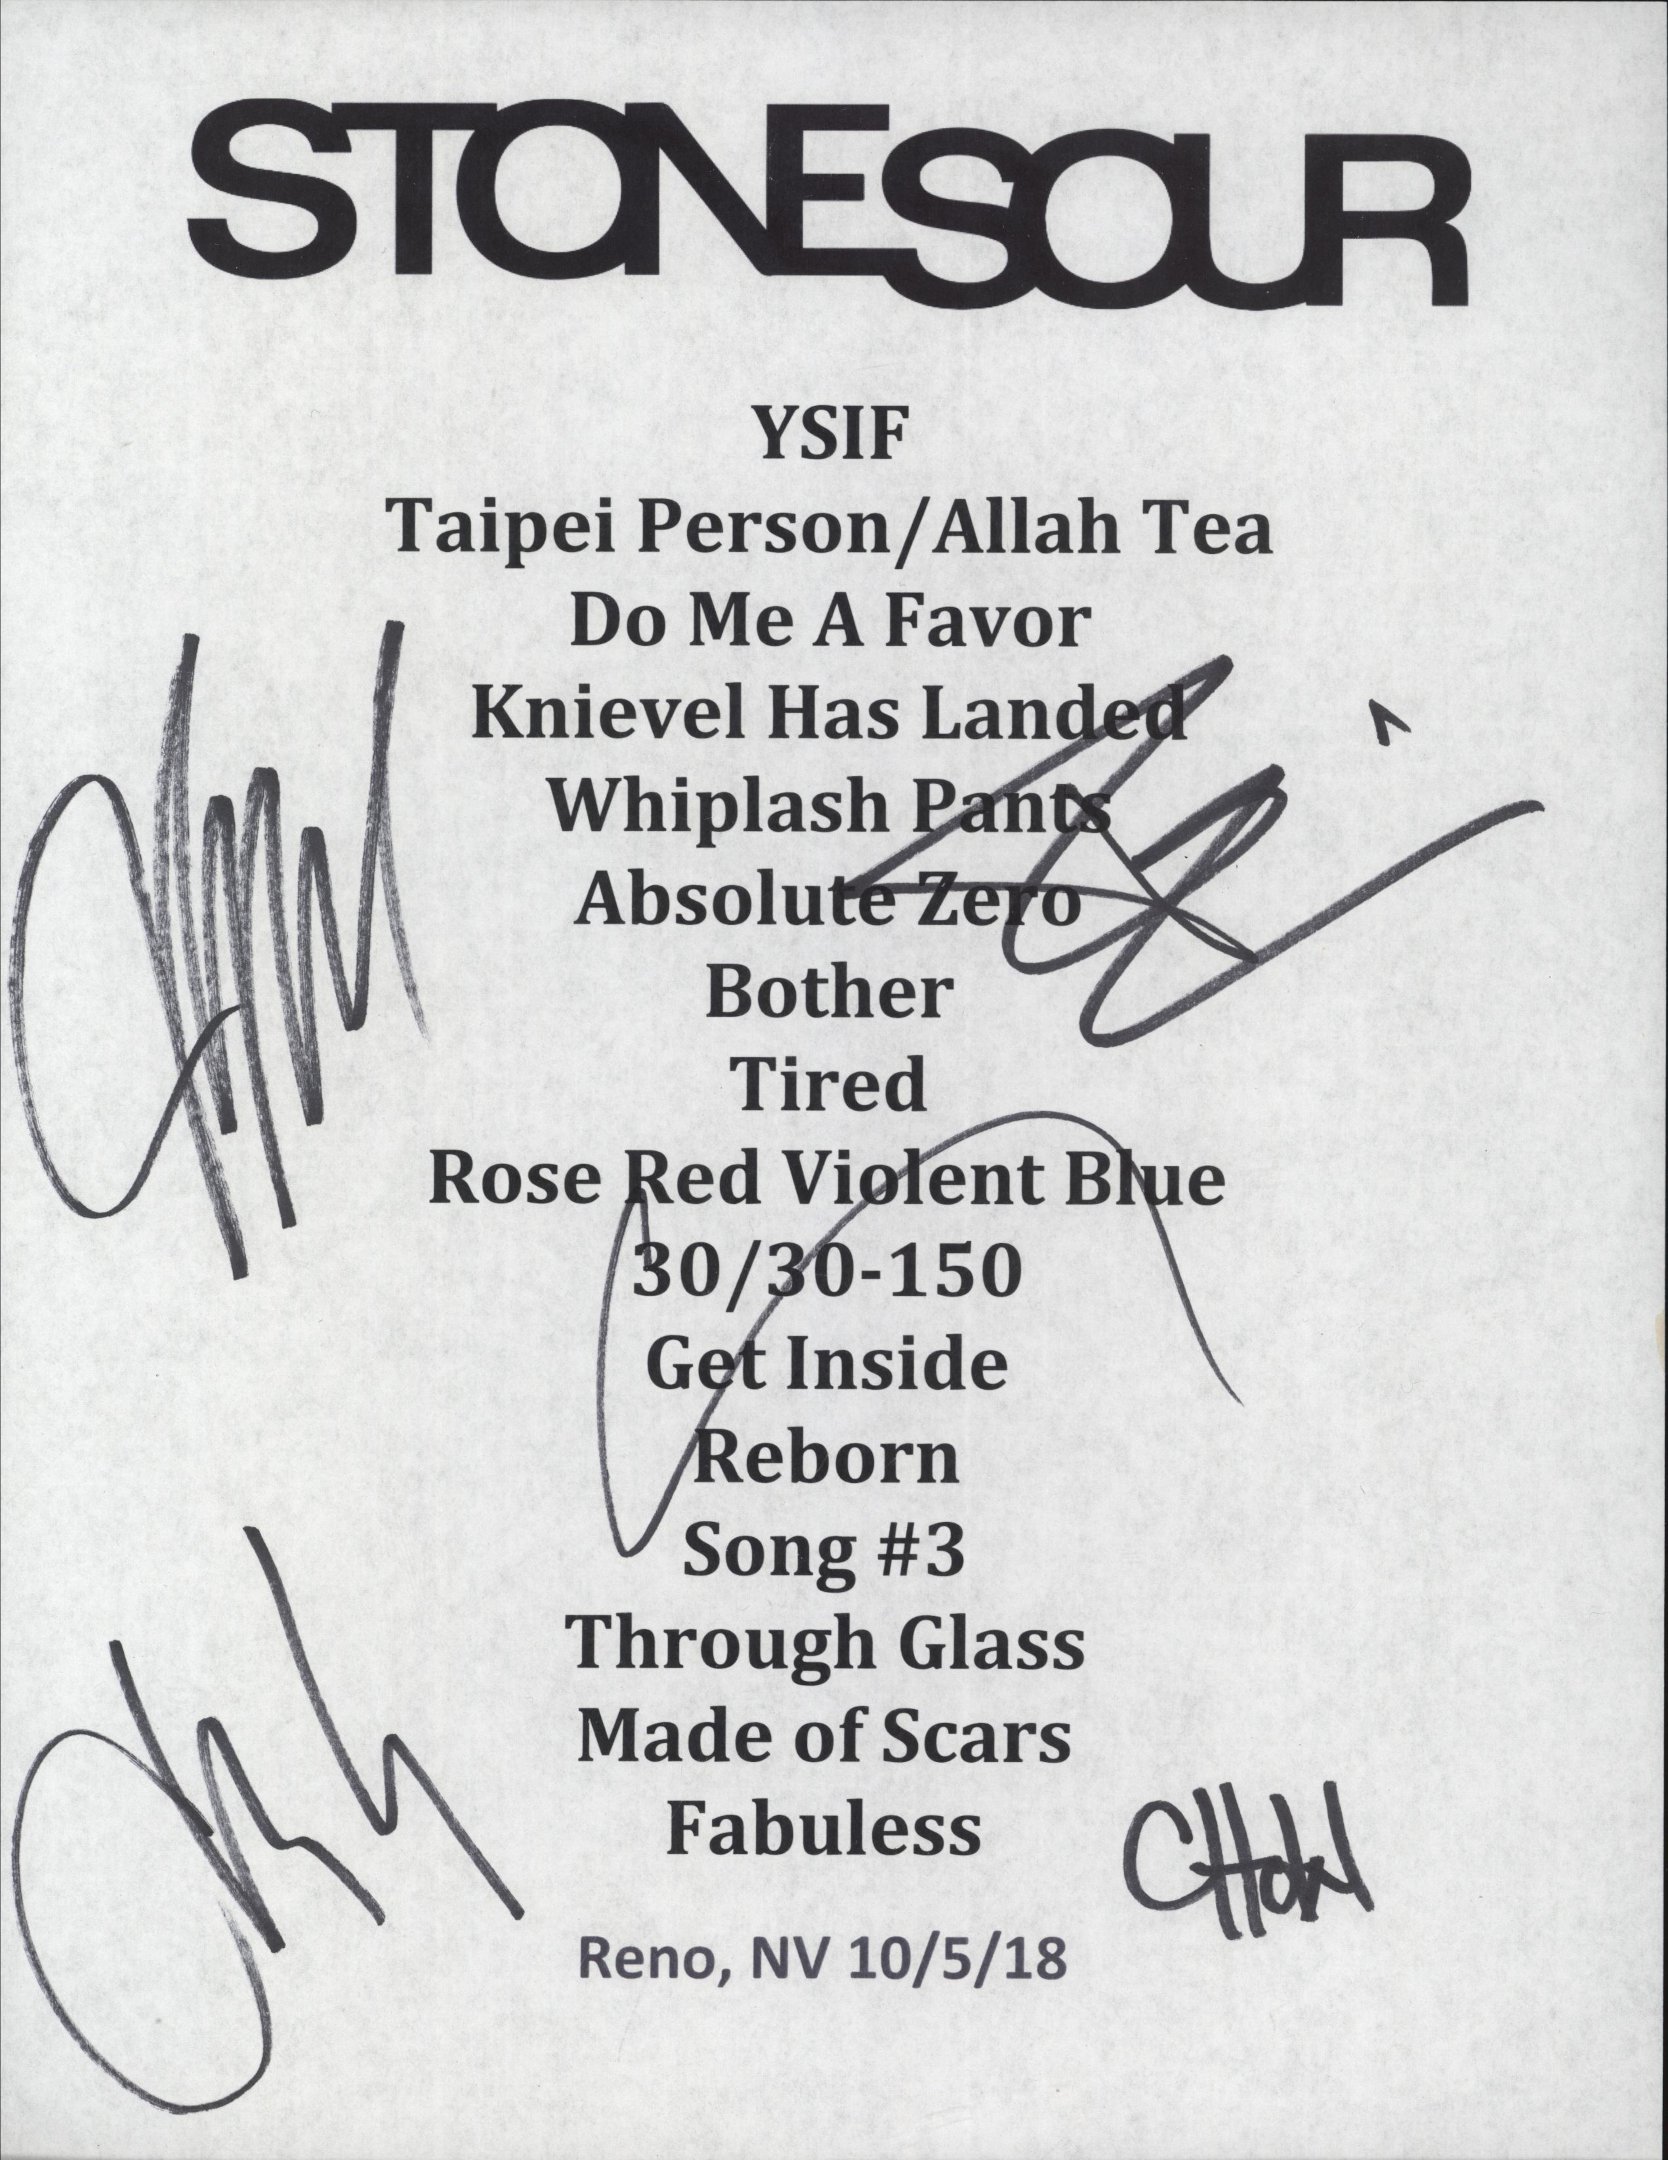 STONESOUR
YSIF
Taipei Person/Allah Tea
Do Me A Favor
Knievel Has Landed
Whiplash Pants
Absolute Zero
Bother
Tired
Rose Red Violent Blue
30/30-150
Get Inside
Reborn
Song #3
Through Glass
Made of Scars
Fabuless
CHOW
Reno, NV 10/5/18